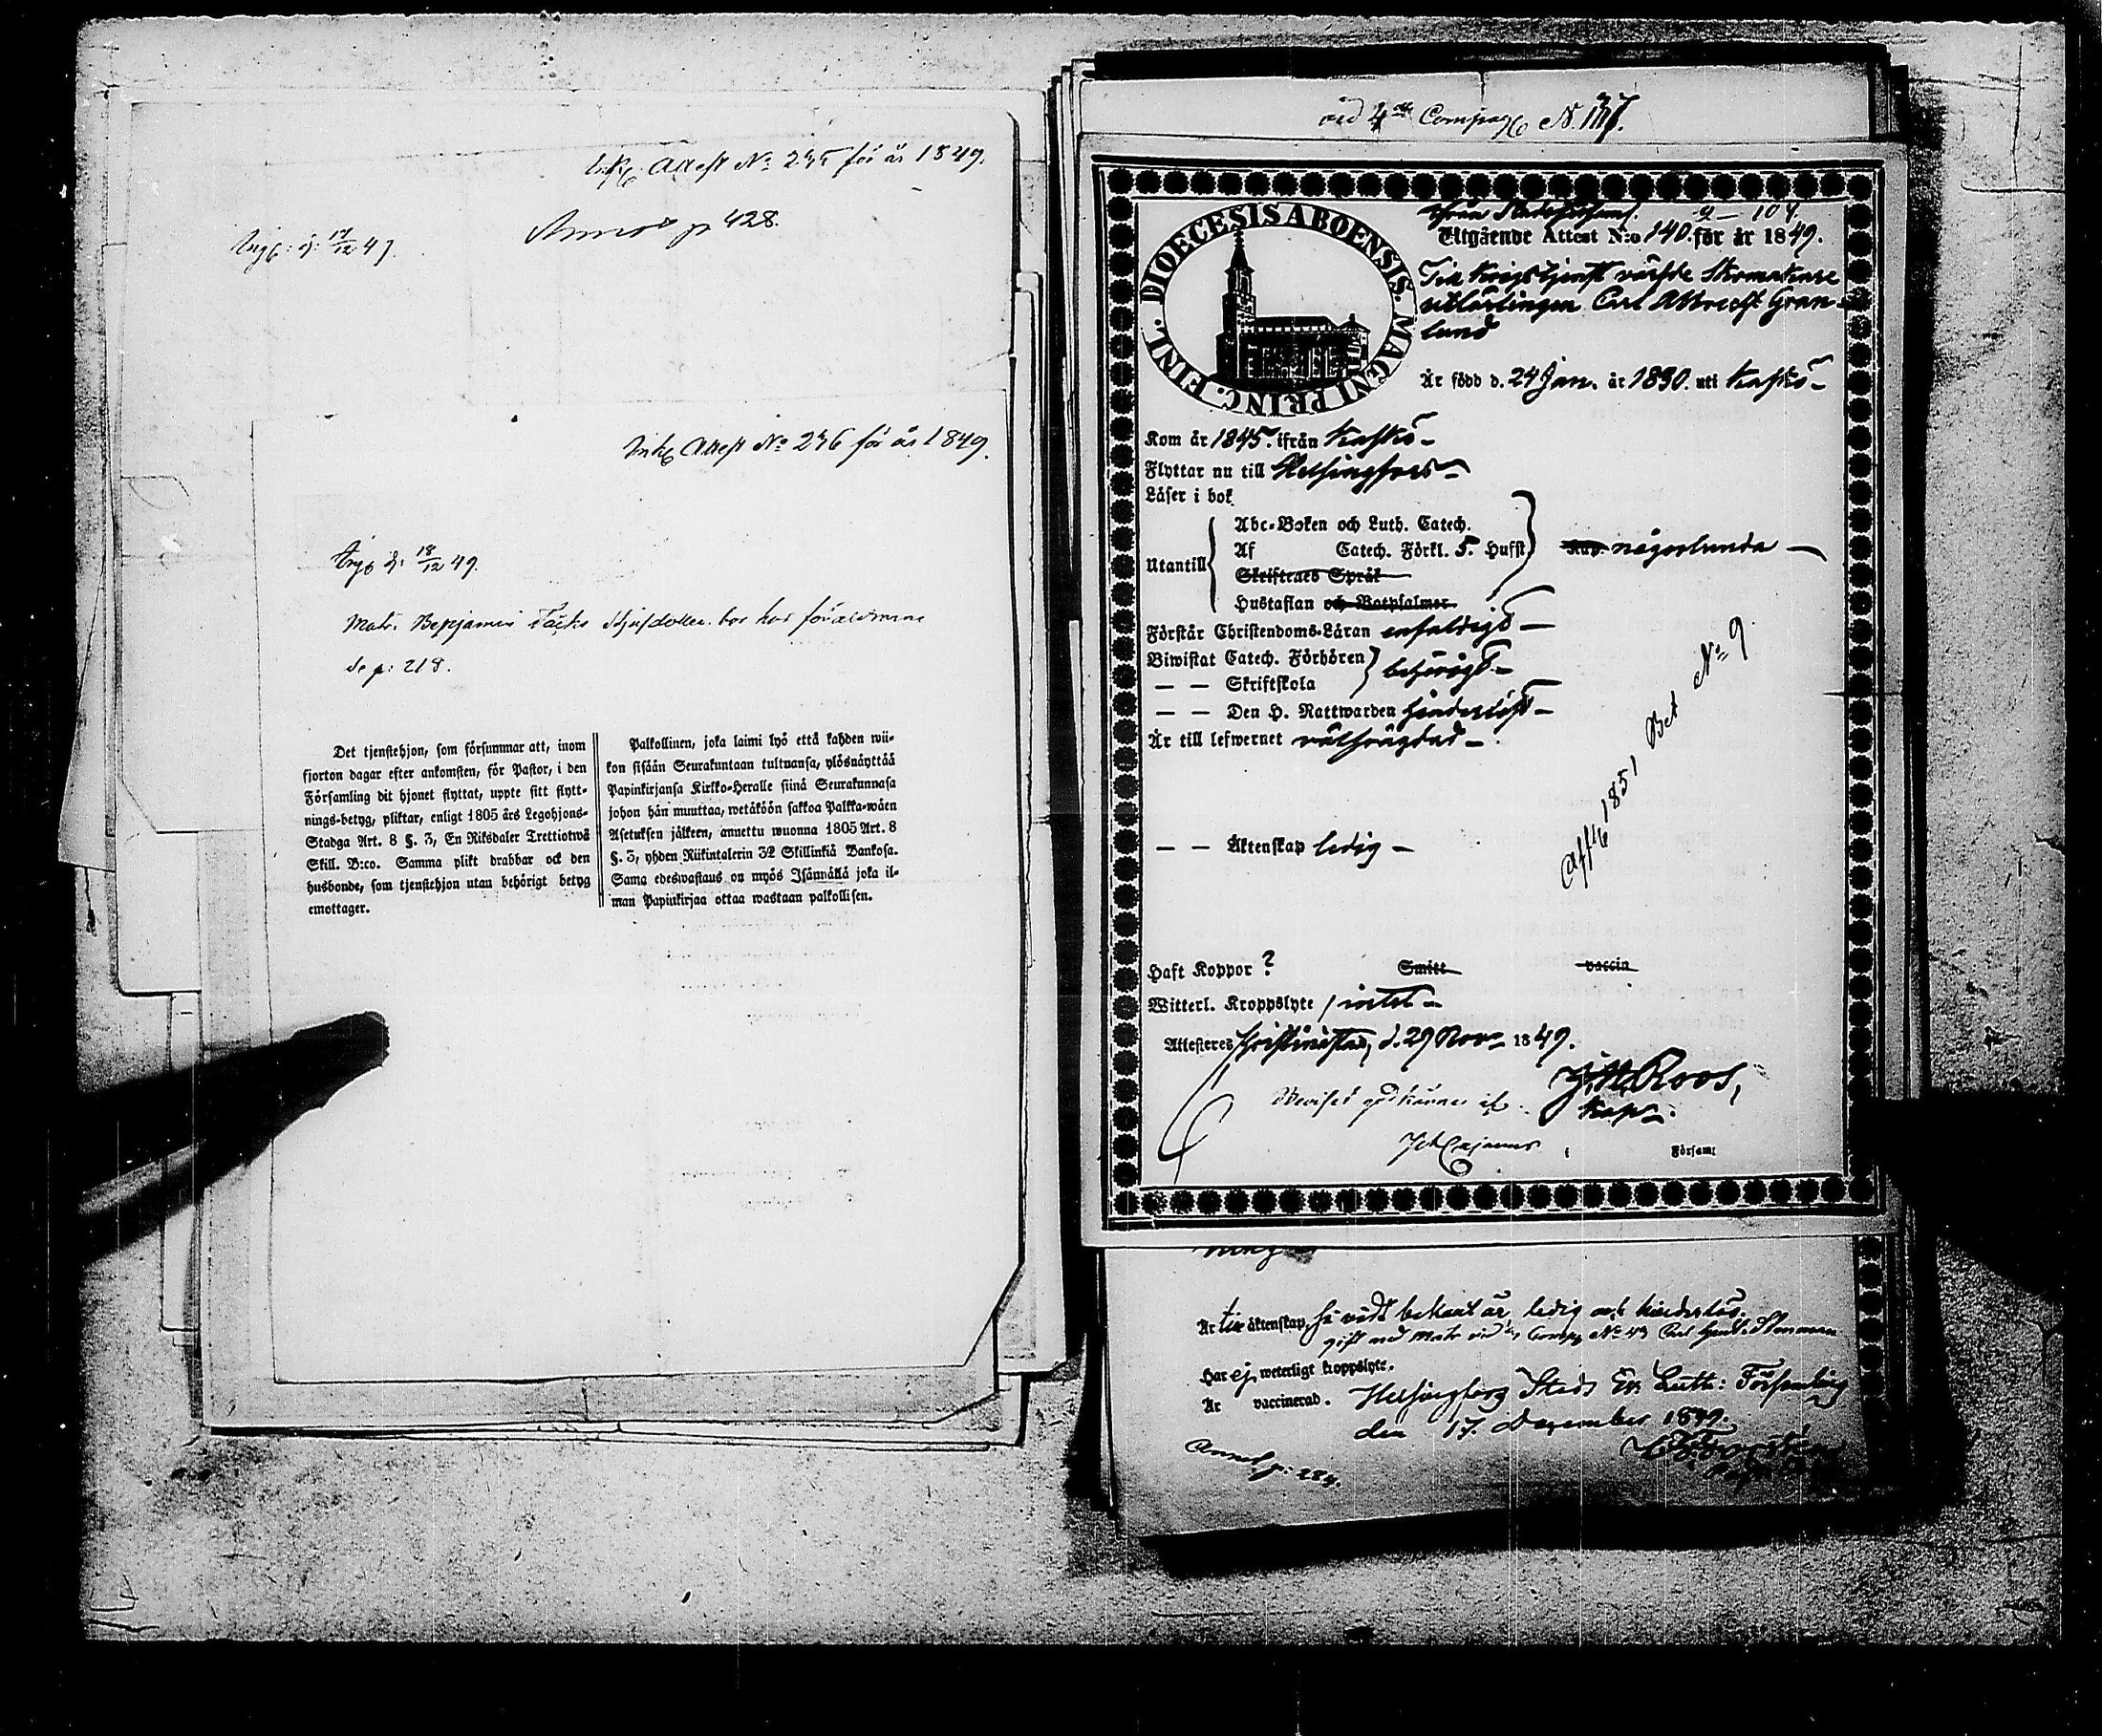 Attest No 235 för år 1849.
p 428.
17/12 49.
Attest No 236 för år 1849.
18/12 49.
Matr. Benjamin bor hos föräldrarne
Se p: 218.
Det tjenstehjon, som försummar att, inom
fjorton dagar efter ankomsten, för Pastor, i den
Församling dit hjonet flyttat, uppte sitt flytt-
nings-betyg, pliktar, enligt 1805 års Legohjons-
Stadga Art. 8 §. 3, En Riksdaler Trettiotwå
Skill. B:co. Samma plikt drabbar ock den
husbonde, som tjenstehjon utan behörigt betyg
emottager.
Palkollinen, joka laimi lyö että kahden wii-
kon sisään Seurakuntaan tultuansa, ylösnäyttää
Papinkirjansa Kirkko-Heralle siinä Seurakunnasa
johon hän muuttaa, wetäköön sakkoa Palkka-wäen
Asetuksen jälkeen, annettu wuonna 1805 Art. 8
§. 3, yhden Riikintalerin 32 Skillinkiä Bankosa.
Sama edeswastaus on myös Isännällä joka il-
man Papinkirjaa ottaa wastaan palkollisen.
vid 4de Comp N. 137.
DIOECESIS ABOENSIS. MAGNI PRINC. FINL.
Från 2 — 104.
Utgående Attest N:o 140. för år 1849.
Till Krigstjenst värfde Skomakare
utlärlingen Carl Albrecht Gran-
lund
Är född d. 24 Jan. år 1830. uti Kaskö
Kom år 1845. ifrån Kaskö
Flyttar nu till Helsingfors
Läser i bok
Utantill
Abc-Boken och Luth. Catech.
Af Catech. Förkl. 5. Hufst. någorlunda
Skriftenes Språk
Hustaflan och Botpsalmer
Förstår Christendoms-Läran enfaldigt
Biwistat Catech. Förhören behörigt
— — Skriftskola
— — Den H. Nattwarden hinderlöst
Är till lefwernet välfrägdad
— — Äktenskap ledig
1851 Bet No 9.
Haft Koppor ? Smitt vaccin
Witterl. Kroppslyte intet
Attesteras Christinestad, d. 29 Nov. 1849.
J. N. Roos,
Kapn.
Beviset godkännes af
Joh Cajanus
Församl
Är till äktenskap, så vidt bekant är, ledig och hinderlös.
gift med Matr vid Comp No 43 Carl Stenman
Har ej weterligt kroppslyte.
Är vaccinerad. Helsingfors Stads Ev. Luth: Församling
den 17. December 1849.
Annot. p: 284.